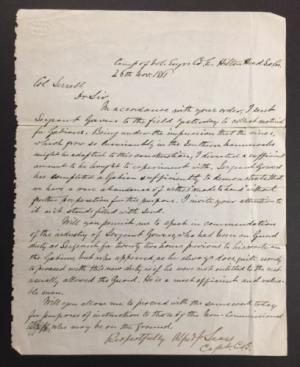 Camp of Vol. Engrs Co. E. Hilton Head So. Ca
26th Nov. 1861
Col Serrell
Dr Sir
In accordance with your order, I sent
Sergeant Graves to the field yesterday to collect material
for Gabions. Being under the impression that the vines,
which grow so luxuriantly in the Southern hammocks
might be adapted to this construction, I directed a sufficient
amount to be brought to experiment with. Sergeant Graves
has completed a Gabion sufficiently to demonstrate that
we have a vine abundance of withes made to hand without
further preparation for this purpose. I invite your attention to
it as it stands filled with sand.
Will you permit me to speak in commendation
of the industry of Sergeant Graves, who had been on Guard
duty as Sergeant for twenty two hours previous to his work on
the Gabion, but who appeared, as he always does quite ready
to proceed with this new duty as if he were not entitled to the rest
usually allowed the Guard. He is a most efficient and valu-
able man.
Will you allow me to proceed with the same work today
for purposes of instruction to those of the Non-Commissioned
officers, who may be on the Ground.
Respectfully Alfred F. Sears
Capt. C. E.